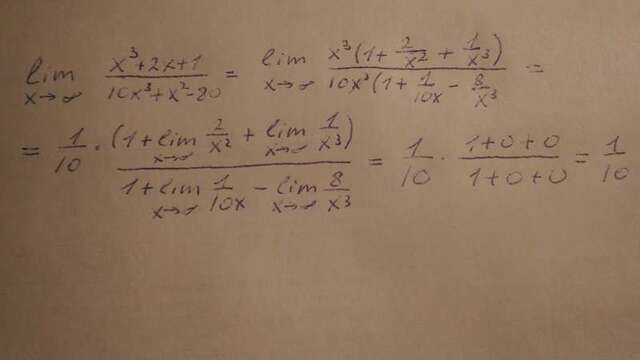 lim x→∞ (x³+2x+1)/(10x³+x²-80) = lim x→∞ x³(1+2/x²+1/x³)/(10x³(1+1/10x-8/x³) =
= 1/10 · (1+lim x→∞ 2/x²+lim x→∞ 1/x³)/(1+lim x→∞ 1/10x-lim x→∞ 8/x³) = 1/10 · (1+0+0)/(1+0+0) = 1/10